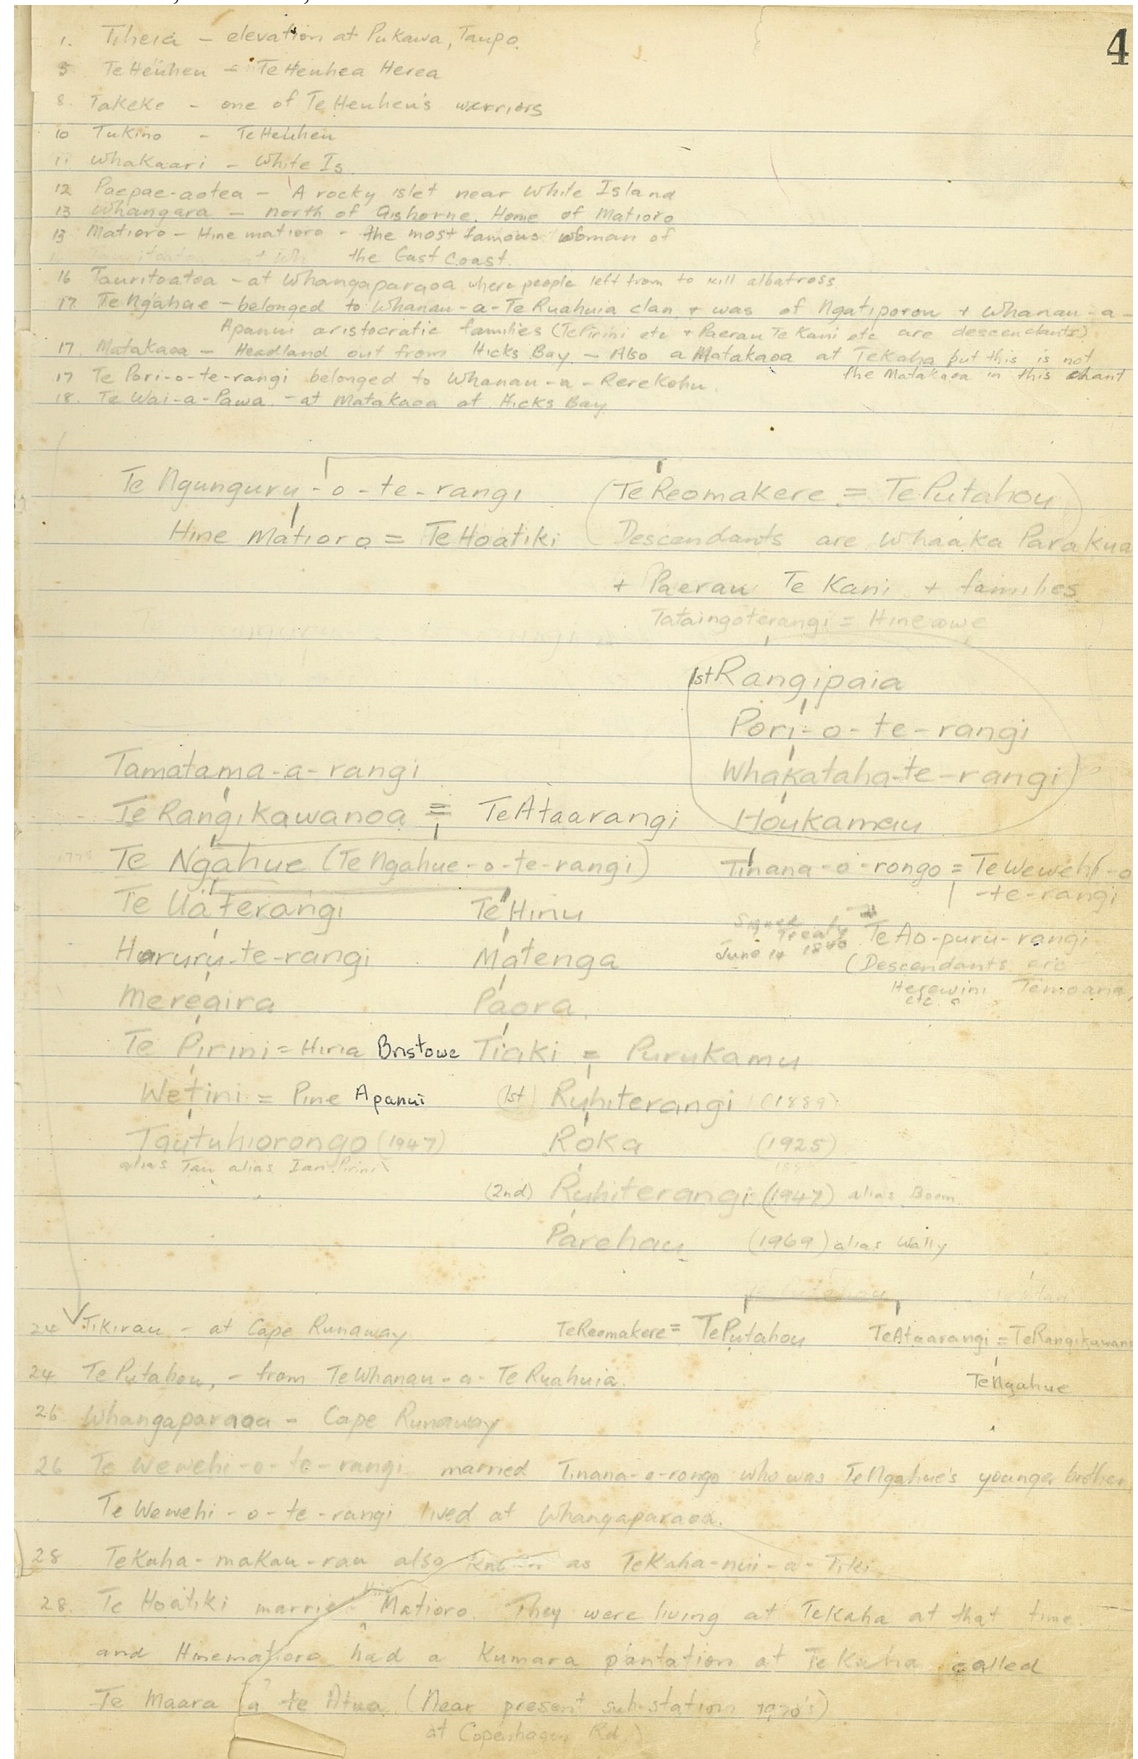 4
1. Tiheia - elevation at Pukawa, Taupo.
5 Te Heuheu = Te Heuhea Herea
8. Takeke - one of Te Heuheu's warriors
10 Tukino - Te Heuheu
11 Whakaari - White Is
12 Paepae-aotea - A rocky islet near White Island
13 Whangara - north of Gisborne. Home of Matioro
13 Matioro - Hine matioro - the most famous woman of
the East Coast.
16 Tauritoatoa - at Whangaparaoa where people left from to kill albatross
17. Te Ngahue - belonged to Whanau-a-Te Ruahuia clan, + was of Ngatiporou + Whanau-a-
Apanui aristocratic families (Te Pirini etc + Paerau Te Kani etc are descendants).
17. Matakaoa - Headland out from Hicks Bay - Also a Matakaoa at Te Kaha but this is not
the Matakaoa in this chant
17 Te Pori-o-te-rangi belonged to Whanau-a-Rerekohu.
18. Te Wai-a-Pawa - at Matakaoa at Hicks Bay
Te Ngunguru-o-te-rangi (Te Reomakere = Te Putahou)
Hine Matioro = Te Hoatiki Descendants are Whaaka Parakua
+ Paerau Te Kani + families
Tataingoterangi = Hineauwe
1st Rangipaia
Pori-o-te-rangi
Tamatama-a-rangi Whakataha-te-rangi)
Te Rangikawanoa = Te Ataarangi Houkamau
Te Ngahue (Te Ngahue-o-te-rangi) Tinana-o-rongo = Te Wewehi-o
-te-rangi
Te Uaterangi Te Hinu
Signed Treaty June 14 1840 Te Ao-puru-rangi
Haruru-te-rangi Matenga (Descendants are
Mereaira Paora Herewini Temoana,
etc.
Te Pirini = Hiria Bristowe Tiaki = Purukamu
Wetini = Pine Apanui (1st) Ruhiterangi (1889)
Tautuhiorongo (1947) Roka (1925)
alias Tau alias Ian Pirini
(2nd) Ruhiterangi (1947) alias Boom
Parehau (1969) alias Wally
Te Putahou
24 Tikirau - at Cape Runaway Te Reomakere = Te Putahou Te Ataarangi = Te Rangikawano
24 Te Putahou, - from Te Whanau-a-Te Ruahuia. Te Ngahue
26 Whangaparaoa - Cape Runaway
26 Te Wewehi-o-te-rangi married Tinana-o-rongo who was Te Ngahue's younger brother
Te Wewehi-o-te-rangi lived at Whangaparaoa.
28 Te Kaha-makau-rau also known as Te Kaha-nui-a-Tiki
28. Te Hoatiki married Hine Matioro. They were living at Te Kaha at that time.
and Hinematioro had a Kumara pantation at Te Kaha called
Te Maara a te Atua. (Near present sub-station 1970's)
at Copenhagen Rd.)